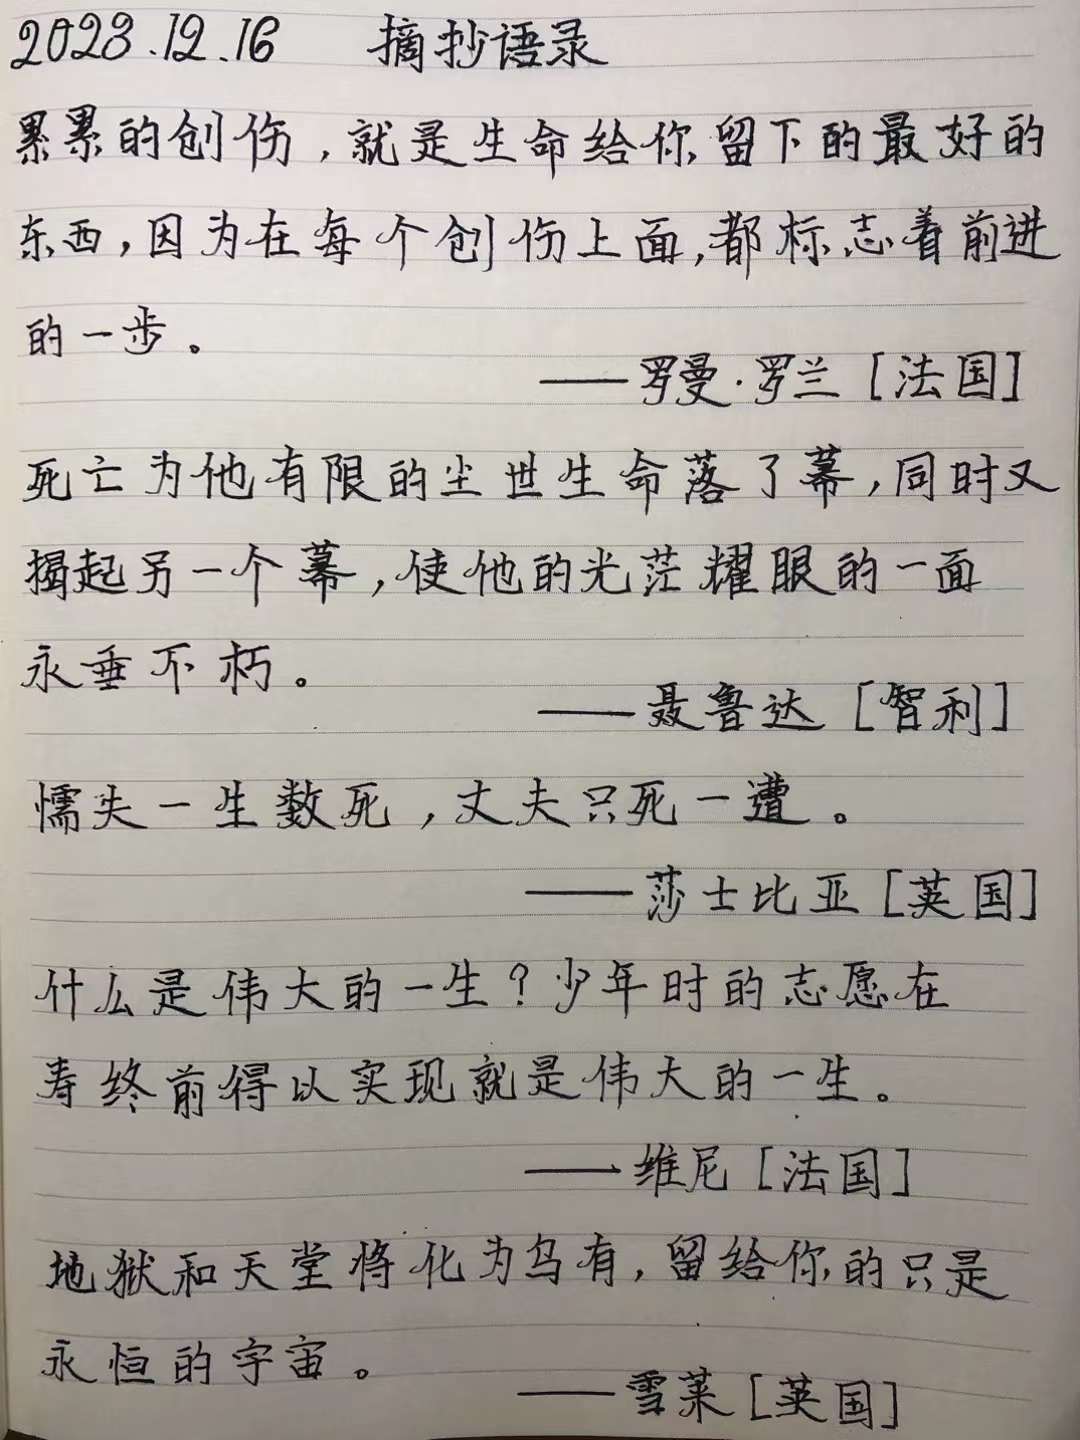 2023.12.16 摘抄语录
累累的创伤，就是生命给你留下的最好的
东西，因为在每个创伤上面，都标志着前进
的一步。
——罗曼·罗兰［法国］
死亡为他有限的尘世生命落了幕，同时又
揭起另一个幕，使他的光茫耀眼的一面
永垂不朽。
——聂鲁达［智利］
懦夫一生数死，丈夫只死一遭。
——莎士比亚［英国］
什么是伟大的一生？少年时的志愿在
寿终前得以实现就是伟大的一生。
——维尼［法国］
地狱和天堂将化为乌有，留给你的只是
永恒的宇宙。
——雪莱［英国］